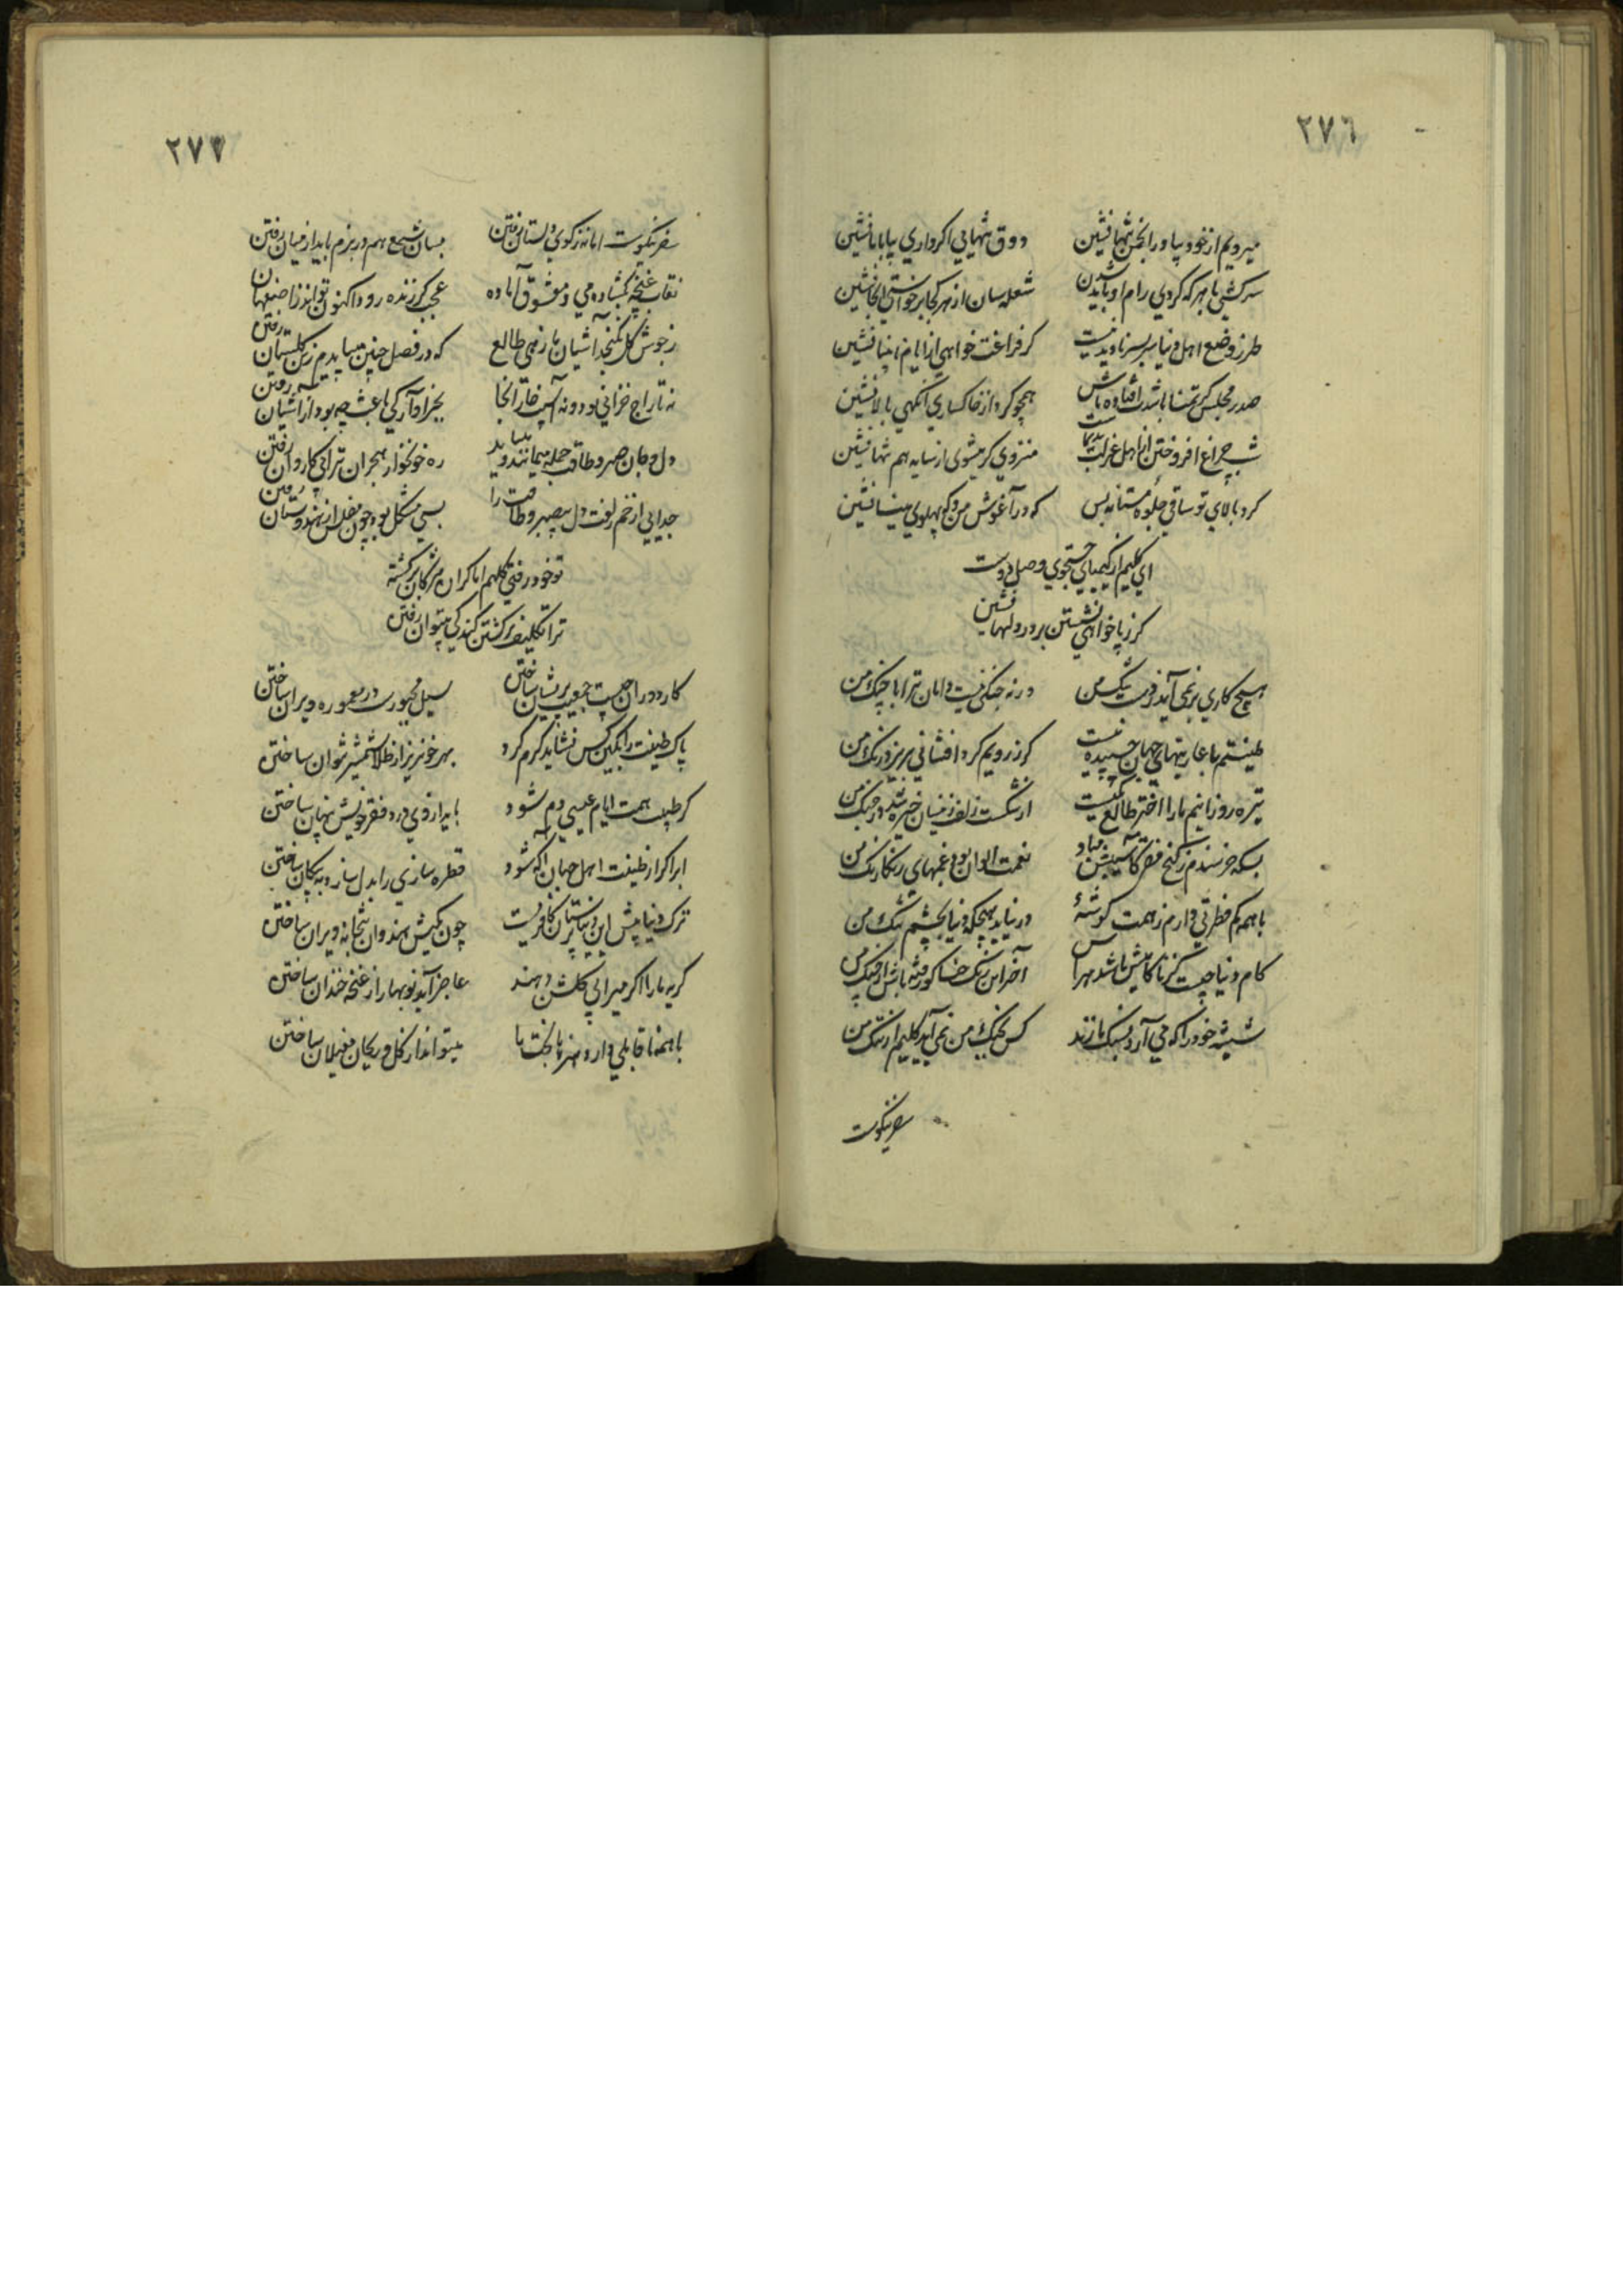 ٢٧٦
میرویم از خود بیا در انجمن تنها نشین
ذوق تنهایی اگر داری بیا با ما نشین
سرکشی با هر که کردی رام او باید شدن
شعله سان از هر کجا برخواستی آنجا نشین
طرز وضع اهل دنیا سر بسر نادیدنیست
گر فراغت خواهی از ایام نابینا نشین
صدر مجلس گر تمنا باشدت افتاده باش
همچو گرد از خاکساری آنگهی بالا نشین
شب چراغ افروختن از اهل عزلت
منزوی گر میشوی از سایه هم تنها نشین
گرد بالای تو ساقی جلوه مستانه بس
که در آغوش من و که پهلوی مینا نشین
ای کلیم از کیمیای جستجوی وصل دوست
گر ز پا خواهی نشستن بر در دلها نشین
هیچ کاری بر نمی آید ز دست تنگ من
ورنه جنگی نیست دامان ترا با چنگ من
طینتم با عاریتهای جهان چسپیده نیست
گر ز رویم گرد افشانی بریزد رنگ من
تیره روزانیم ما را اختر طالع یکیست
از شکست زلف
بسکه خرسندم ز کنج فقر کآسیبش مباد
نعمت الوان بود غمهای رنگارنگ من
با همه کم فطرتی دارم ز همت گوشهٔ
در نیاید هیچگه دنیا بچشم تنگ من
کام دنیا چیست کز ناکامیش باشد هراس
آخر این رنگ حنا گو رفته باش از چنگ من
شیشه خود را که می آرد بسنگ ما زند
کس بجنگ من نمی آید کلیم از ننگ من
سفر نیکوست
٢٧٧
سفر نیکوست اما نه ز کوی دلستان رفتن
بسان شمع هم در بزم باید از میان رفتن
نقاب غنچه بگشاده می و معشوق آماده
عجب گر زنده رود اکنون تواند ز اصفهان رفتن
ز جوش گل نگنجد آشیان ما زهی طالع
که در فصل چنین میبایدم زین گلستان رفتن
نه تاراج خزانی بود و نه آسیب خار آنجا
بجز آوارگی باعث چه بود از آشیان رفتن
دل و جان صبر و طاقت جمله میمانند و میباید
ره خونخوار هجران ترا بی کاروان رفتن
جدایی از خم زلفت دل بیصبر و طاقت را
بسی مشکل بود چون مفلس از هندوستان رفتن
تو خود رفتی کلیم اما گر آن مژگان برگشته
ترا تکلیف برگشتن کند کی میتوان رفتن
کار دوران چیست جمعیت پریشان ساختن
سیل مجبورست در معموره ویران ساختن
پاک طینت را بکین کس نشاید گرم کرد
بهر خونریز از طلا شمشیر نتوان ساختن
گر طبیب همت ایام عیسی دم شود
باید از وی درد فقر خویش پنهان ساختن
ابر اگر از طینت اهل جهان آگه شود
قطره سازی را بدل سازد به پیکان ساختن
ترک دنیا پیش این دنیا پرستان کافریست
چون بکیش هندوان بتخانه ویران ساختن
گریه ما را اگر میرابی گلشن دهند
عاجز آید نوبهار از غنچه خندان ساختن
با همه ناقابلی دارد هنرها بخت ما
میتواند از گل و ریحان مغیلان ساختن